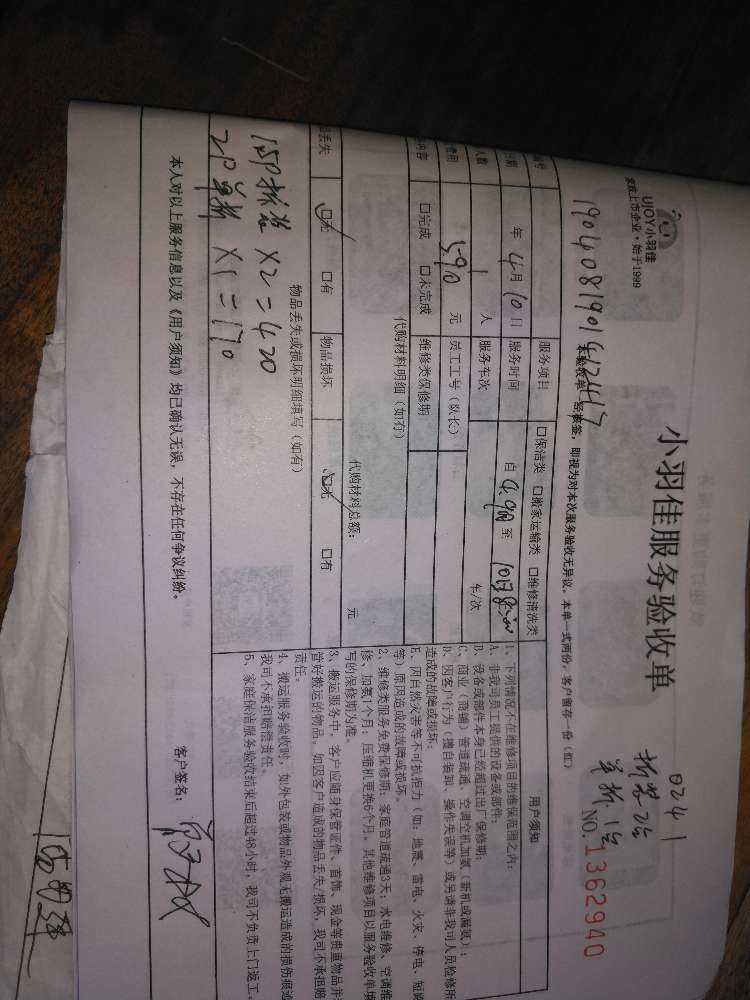 UJOY小羽佳
家政上市企业·始于1999
小羽佳服务验收单
024
拆装2台
单拆1台
NO.1362940
1904081901412447
本验收单一经核签，即视为对本次服务验收无异议。本单一式两份，客户留存一份（红）
编号
服务项目 口保洁类 口搬家运输类 口维修清洗类
用户须知
日期 年4月10日 服务时间 自4.9日 至10日
人数 1人 服务车次 车/次
费用 590元 员工工号（队长）
内容 口完成 口未完成 维修类保修期
代购材料明细（如有）
代购材料总额： 元
品丢失 口无 口有 物品损坏 口无 口有
物品丢失或损坏明细填写（如有）
1.5P拆装 X2=420
2P单拆 X1=170
1、下列情况不在维修项目的维保范围之内：
A、非我司员工提供的设备或部件；
B、设备或部件本身已经超过出厂保修期；
C、商业（商铺）管道疏通、空调空机加氨（新机或漏氨）；
D、因客户行为（擅自装卸、操作失误等）或另请非我司人员检修所
造成的故障或损坏；
E、因自然灾害等不可抗拒力（如：地震、雷电、火灾、停电、短路
等）原因造成的故障或损坏。
2、维修类服务免费保修期：家庭管道疏通3天；水电维修、空调维
修、加氨1个月；压缩机更换6个月。其他维修项目以服务验收单填
写的保修期为准。
3、搬运服务中，客户应随身保管证件、首饰、现金等贵重物品并
管好搬运的物品。如因客户造成的物品丢失/损坏，我司不承担赔
责任。
4、搬运服务验收时，如外包装或物品外观无搬运造成的损伤痕迹
我司不承担赔偿责任。
5、家庭保洁服务验收结束后超过48小时，我司不负责上门返工。
本人对以上服务信息以及《用户须知》均已确认无误，不存在任何争议纠纷。
客户签名：